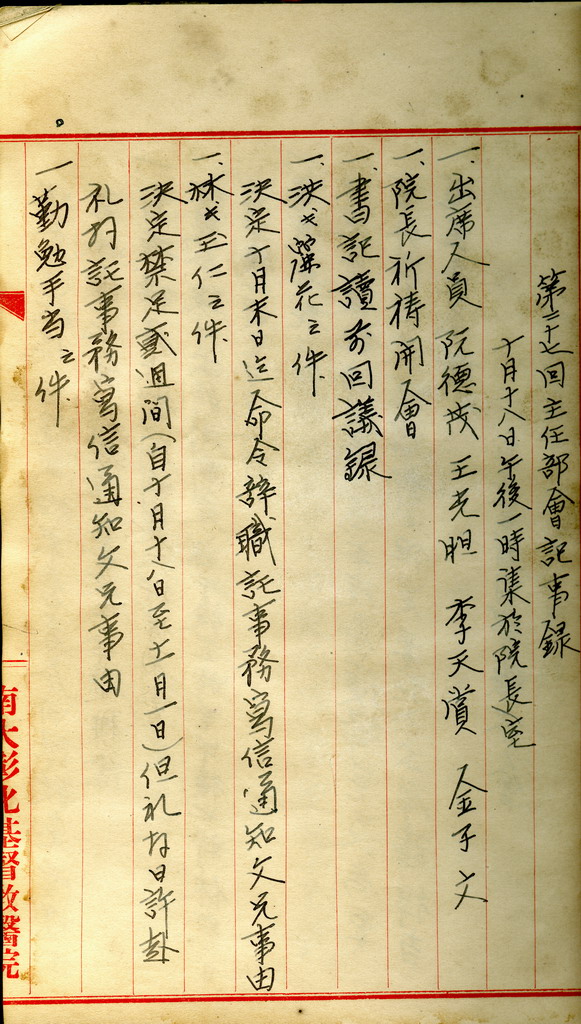 第二十七回主任部會記事録
十月十八日午後一時集於院長室
一、出席人員 阮德茂 王光胆 李天賞 金子文
一、院長祈禱開會
一、書記讀前回議録
一、洪氏 花之件
決定十月末日迄命令辞職託事務寫信通知父兄事由
一、林氏玉仁之件
決定禁足貳週間(自十月十八日至十一月一日)但礼拜日許赴
礼拜託事務寫信通知父兄事由
一 勤勉手当之件
南大彰化基督教醫院